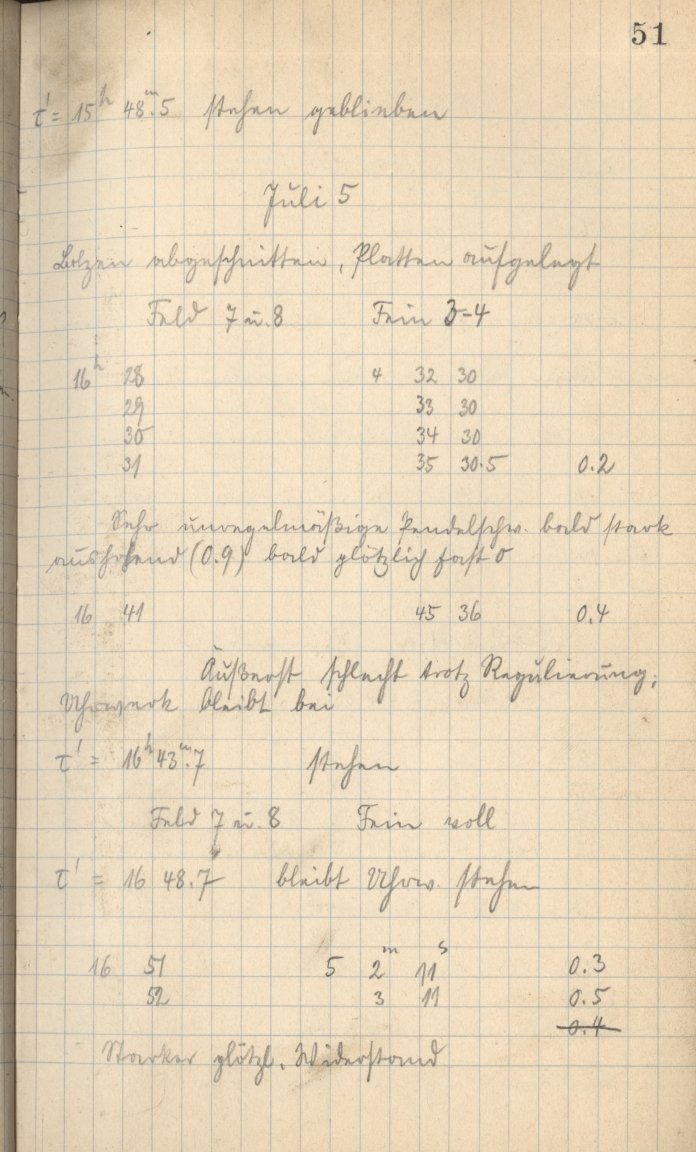 51
τ' = 15ʰ 48ᵐ.5 stehen geblieben
Juli 5
Bolzen abgeschnitten, Platten aufgelegt
Feld 7 u. 8 Fein 3=4
16ʰ 28 4 32 30
29 33 30
30 34 30
31 35 30.5 0.2
Sehr unregelmäßige Pendelschw. bald stark
ausschlagend (0.9) bald plötzlich fast 0
16 41 45 36 0.4
Äußerst schlecht trotz Regulierung;
Uhrwerk bleibt bei
τ' = 16ʰ 43ᵐ.7 stehen
Feld 7 u. 8 Fein voll
τ' = 16 48.7 bleibt Uhrw. stehen
16 51 5 2ᵐ 11ˢ 0.3
52 3 11 0.5
0.4
Starker plötzl. Widerstand